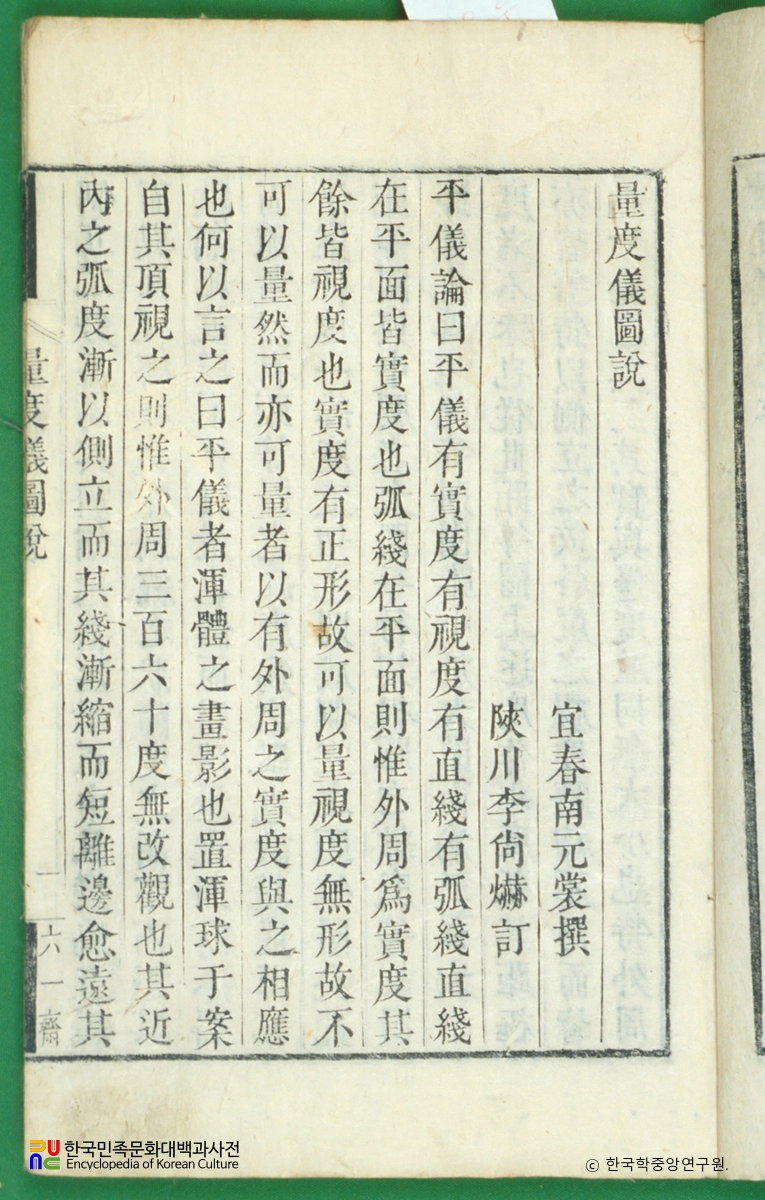 量度儀圖說
宜春南元裳撰
陜川李尙爀訂
平儀論曰平儀有實度有視度有直綫有弧綫直綫
在平面皆實度也弧綫在平面則惟外周爲實度其
餘皆視度也實度有正形故可以量視度無形故不
可以量然而亦可量者以有外周之實度與之相應
也何以言之曰平儀者渾體之畫影也置渾球于案
自其頂視之則惟外周三百六十度無改觀也其近
內之弧度漸以側立而其綫漸縮而短離邊愈遠其
量度儀圖說
一
六一齋
한국민족문화대백과사전
Encyclopedia of Korean Culture
ⓒ 한국학중앙연구원.